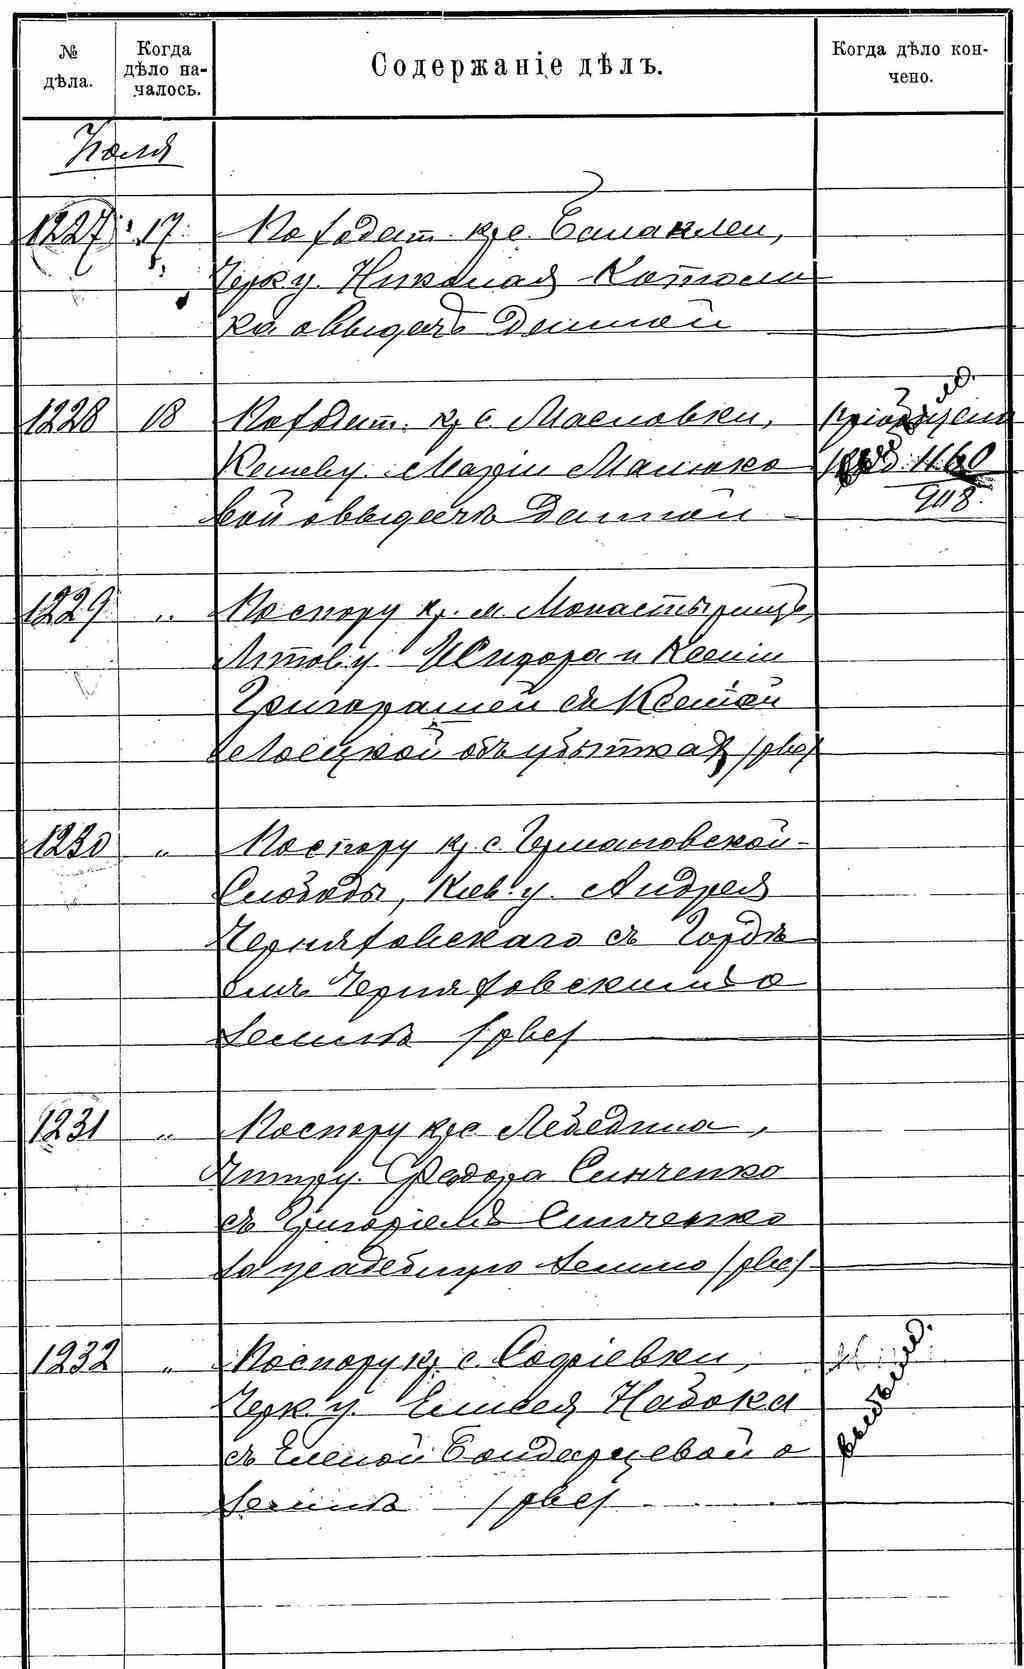 № дѣла.
Когда дѣло началось.
Содержаніе дѣлъ.
Когда дѣло кончено.
Іюля
1227 17 По ходат. кр. с. Балаклеи,
Черк. у. Николая Католи-
ка о выдачѣ данной
1228 18 По ходат. кр. с. Масловки, пріобщено
Каневу. Маріи Малюко- 1160
вой о выдачѣ данной 908
1229 " По спору кр. м. Монастырищъ,
Липов. у. Исидора и Ксеніи
Григорашей съ Ксеніей
Лоецкой объ убыткахъ /рве/
1230 " По спору кр. с. Германовской
Слободы, Кіев. у. Андрея
Черняховскаго съ Гордѣ-
емъ Черняховскимъ о
землѣ /рве/
1231 " По спору кр. с. Лебедина,
Федора Синченко
съ Григоріемъ Синченко
за усадебную землю /рве/
1232 " По спору кр. с. Софіевки,
Черк. у. Елисея Набока
съ Еленой Бондарцевой о
землѣ /рве/